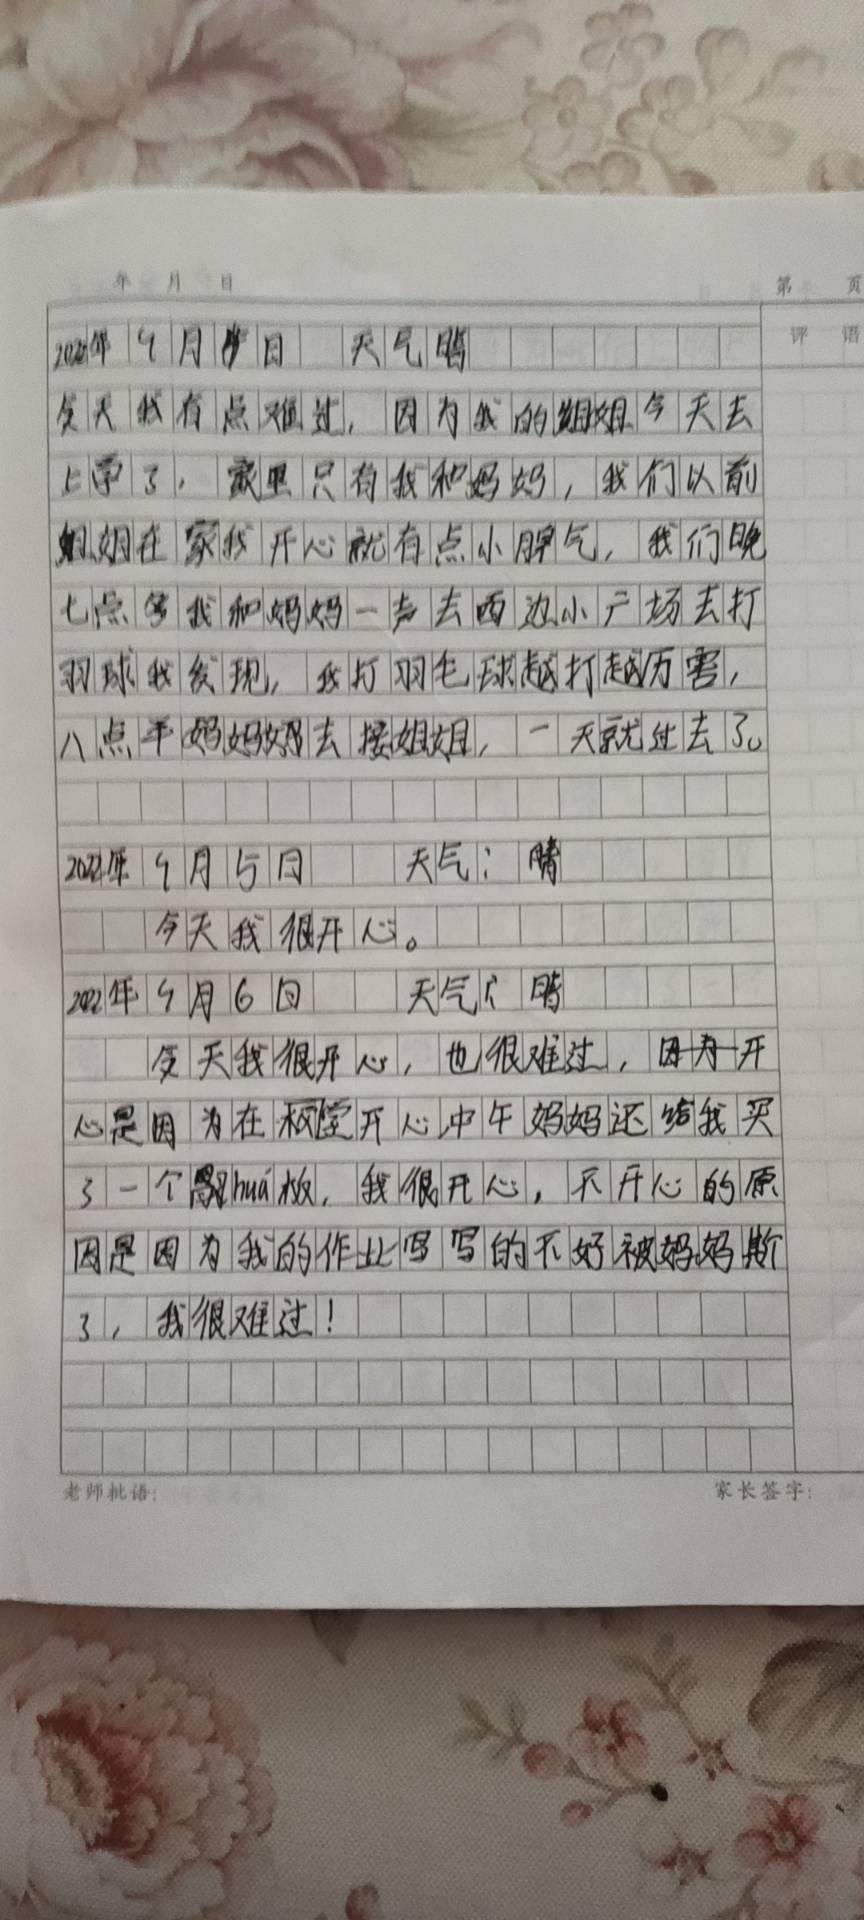 年 月 日
第 页
评 语
年 9月 日 天气晴
今天我有点难过，因为我的姐姐今天去
上学了，家里只有我和妈妈，我们以前
姐姐在家我开心就有点小脾气，我们晚
七点多我和妈妈一声去西边小广场去打
羽球我发现，我打羽毛球越打越历害，
八点半妈妈去接姐姐，一天就过去了。
2022年 9月5日 天气：晴
今天我很开心。
2022年9月6日 天气：晴
今天我很开心，也很难过，因为开
心是因为在校开心中午妈妈还给我买
了一个huá板，我很开心，不开心的原
因是因为我的作业写写的不好被妈妈斯
了，我很难过！
老师批语：
家长签字：